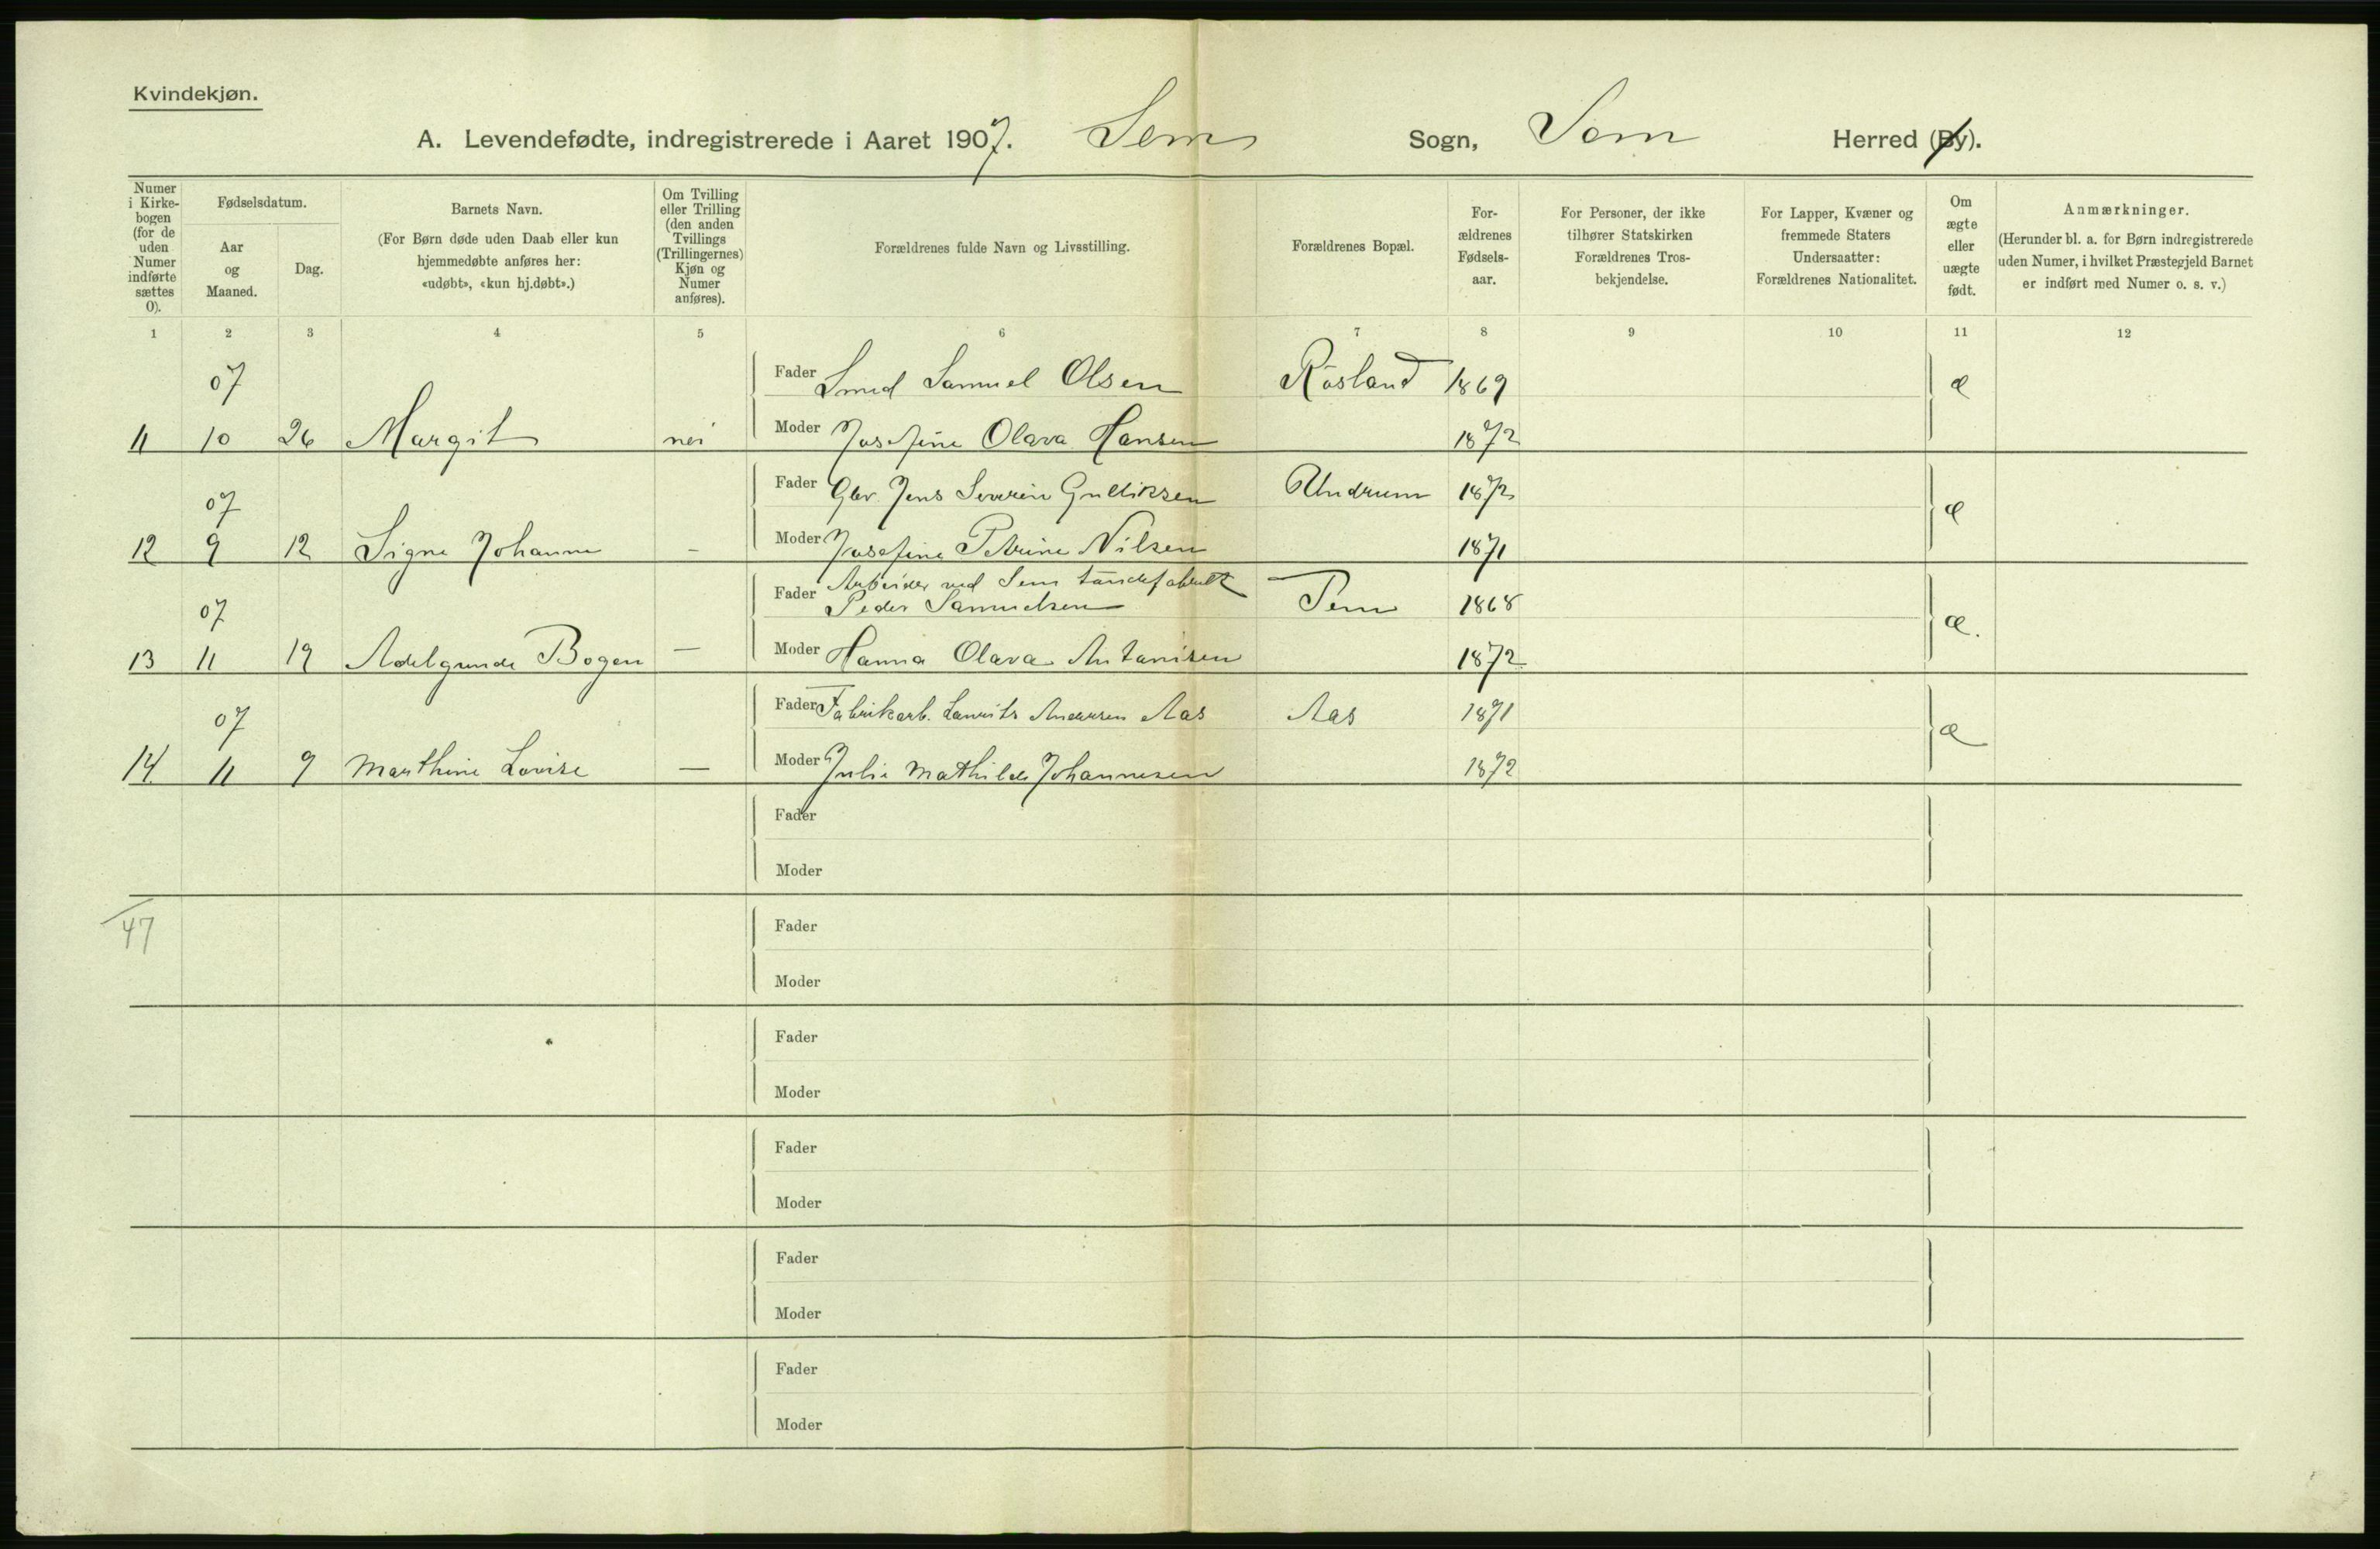 Kvindekjøn.
A. Levendefødte, indregistrerede i Aaret 1907. Sem Sogn, Sem Herred (By).
Numer i Kirke-bogen (for de uden Numer indførte sættes 0).
Fødselsdatum.
Aar og Maaned.
Dag.
Barnets Navn.
(For Børn døde uden Daab eller kun hjemmedøbte anføres her: «udøbt», «kun hj.døbt».)
Om Tvilling eller Trilling (den anden Tvillings (Trillingernes) Kjøn og Numer anføres).
Forældrenes fulde Navn og Livsstilling.
Forældrenes Bopæl.
For-ældrenes Fødsels-aar.
For Personer, der ikke tilhører Statskirken Forældrenes Tros-bekjendelse.
For Lapper, Kvæner og fremmede Staters Undersaatter: Forældrenes Nationalitet.
Om ægte eller uægte født.
Anmærkninger.
(Herunder bl. a. for Børn indregistrerede uden Numer, i hvilket Præstegjeld Barnet er indført med Numer o. s. v.)
1 2 3 4 5 6 7 8 9 10 11 12
07 Fader Smed Samuel Olsen Råsland 1869 æ
11 10 26 Margit nei Moder Josefine Olava Hansen 1872
07 Fader Gbr. Jens Severin Gulliksen Undrum 1872 æ
12 9 12 Signe Johanne – Moder Josefine Petrine Nilsen 1871
Arbeider ved Sem
07 Fader Peder Samuelsen Sem 1868 æ.
13 11 19 Adelgunde Bogen – Moder Hanna Olava Antonisen 1872
07 Fader Fabrikarb. Laurits Andersen Aas Aas 1871 æ
14 11 9 Marthine Lovise – Moder Julie Mathilde Johannesen 1872
Fader
Moder
47
Fader
Moder
Fader
Moder
Fader
Moder
Fader
Moder
Fader
Moder